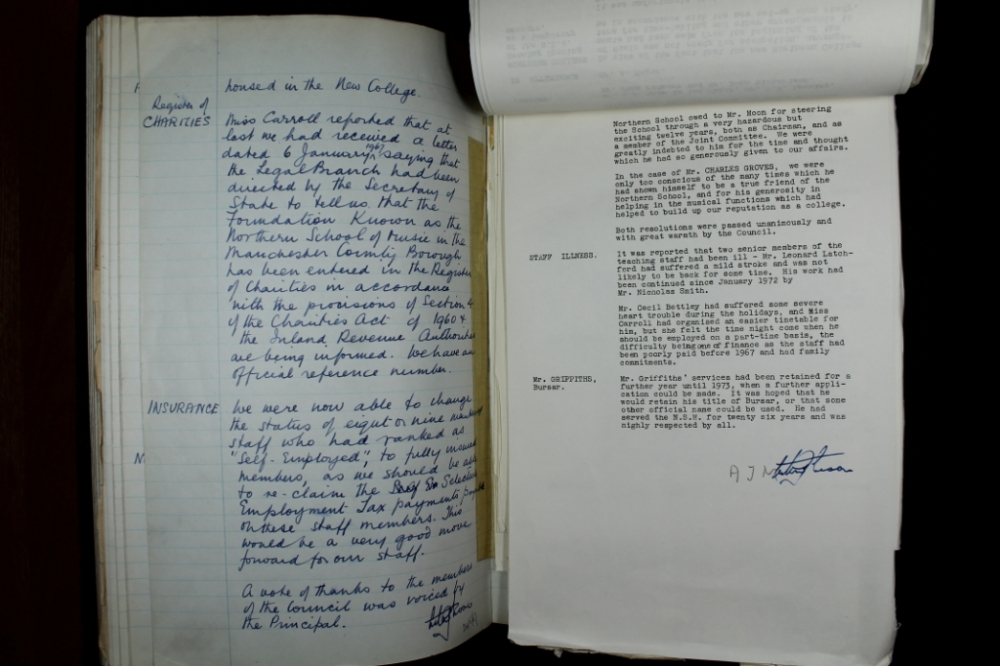 housed in the New College.
Register of
CHARITIES
Miss Carroll reported that at
last we had received a letter
dated 6 January 1967 saying that
the Legal Branch had been
directed by the Secretary of
State to tell us that the
Foundation Known as the
Northern School of Music in the
Manchester County Borough
has been entered in the Register
of Charities in accordance
with the provisions of Section 4
of the Charities Act of 1960 &
the Inland Revenue Authorities
are being informed. We have an
official reference number.
INSURANCE
We were now able to change
the status of eight or nine members
staff who had ranked as
"Self-Employed", to fully insured
members, as we should be able
to re-claim the Selective
Employment Tax payments
on these staff members. This
would be a very good move
forward for our staff.
A vote of thanks to the members
of the Council was voiced by
the Principal.
Northern School owed to Mr. Moon for steering
the School through a very hazardous but
exciting twelve years, both as Chairman, and as
a member of the Joint Committee. We were
greatly indebted to him for the time and thought
which he had so generously given to our affairs.
In the case of Mr. CHARLES GROVES, we were
only too conscious of the many times which he
had shown himself to be a true friend of the
Northern School, and for his generosity in
helping in the musical functions which had
helped to build up our reputation as a college.
Both resolutions were passed unanimously and
with great warmth by the Council.
STAFF ILLNESS.
It was reported that two senior members of the
teaching staff had been ill - Mr. Leonard Latch-
ford had suffered a mild stroke and was not
likely to be back for some time. His work had
been continued since January 1972 by
Mr. Nicholas Smith.
Mr. Cecil Bettley had suffered some severe
heart trouble during the holidays, and Miss
Carroll had organised an easier timetable for
him, but she felt the time might come when he
should be employed on a part-time basis, the
difficulty being one of finance as the staff had
been poorly paid before 1967 and had family
commitments.
Mr. GRIFFITHS,
Bursar.
Mr. Griffiths' services had been retained for a
further year until 1973, when a further appli-
cation could be made. It was hoped that he
would retain his title of Bursar, or that some
other official name could be used. He had
served the N.S.M. for twenty six years and was
highly respected by all.